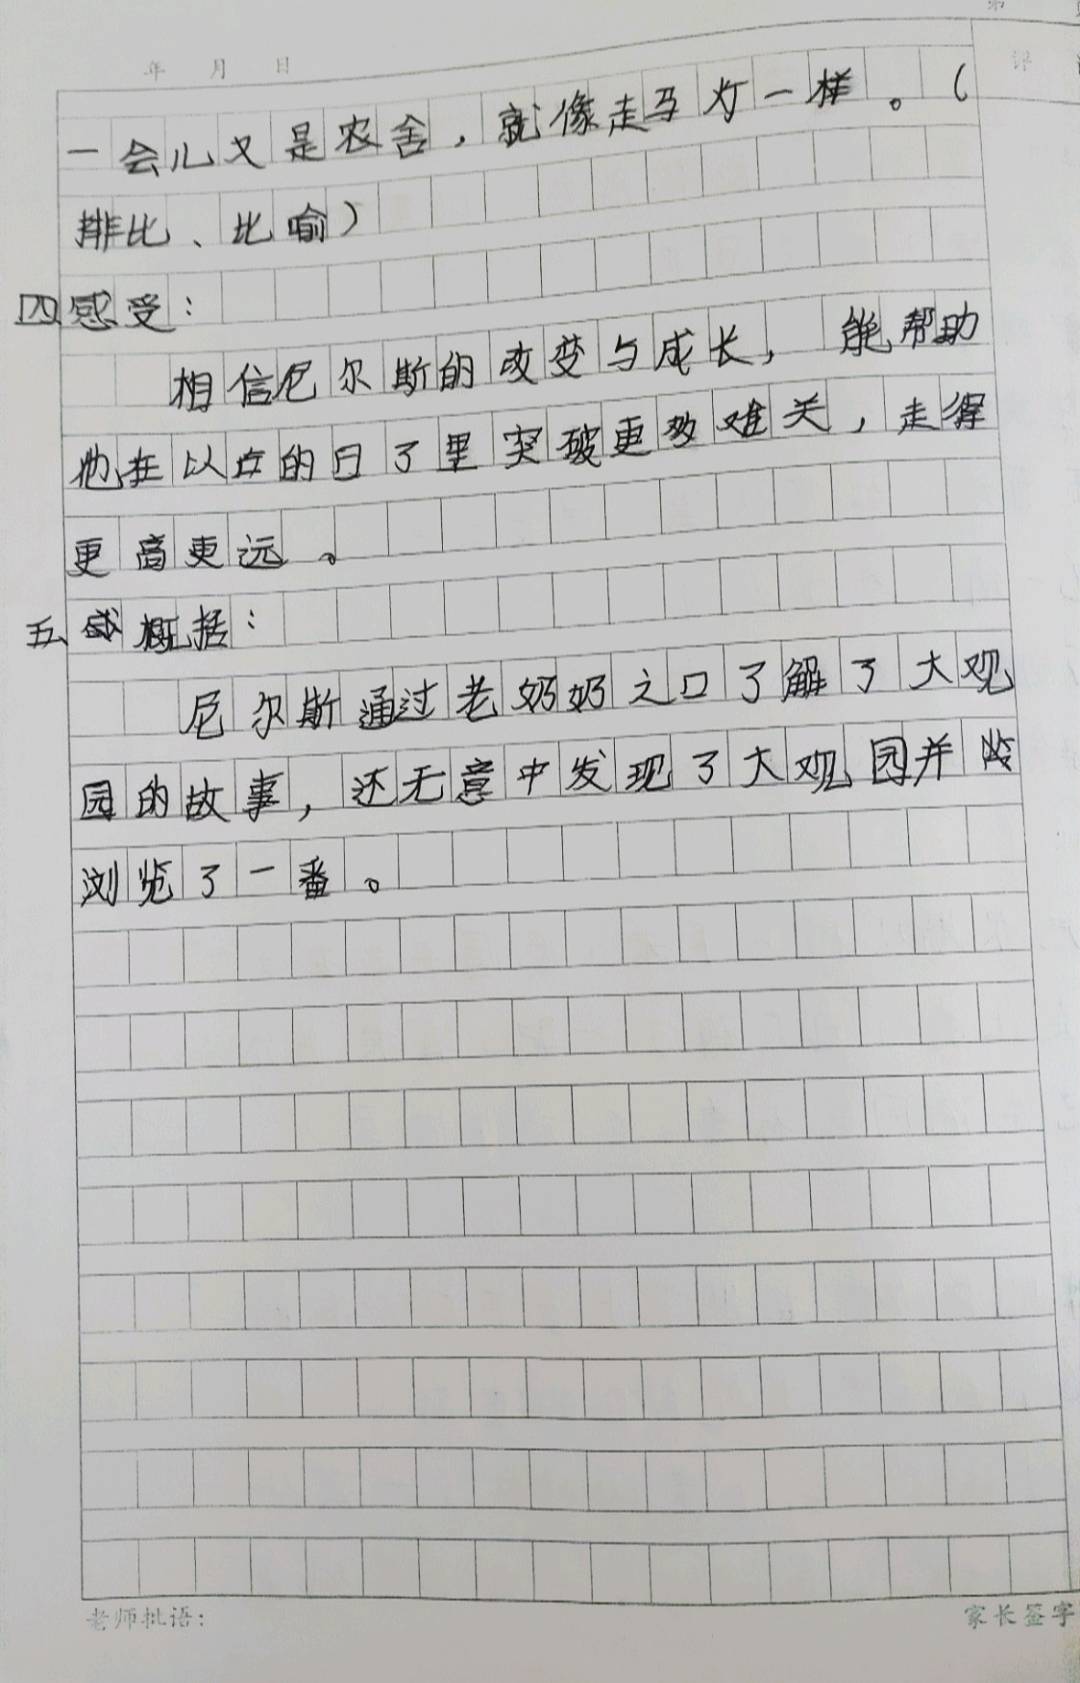 年 月 日
一会儿又是农舍，就像走马灯一样。（
排比、比喻）
四、感受：
相信尼尔斯的改变与成长，能帮助
他在以后的日子里突破更多难关，走得
更高更远。
五、概括：
尼尔斯通过老奶奶之口了解了大观
园的故事，还无意中发现了大观园并
浏览了一番。
老师批语：
家长签字